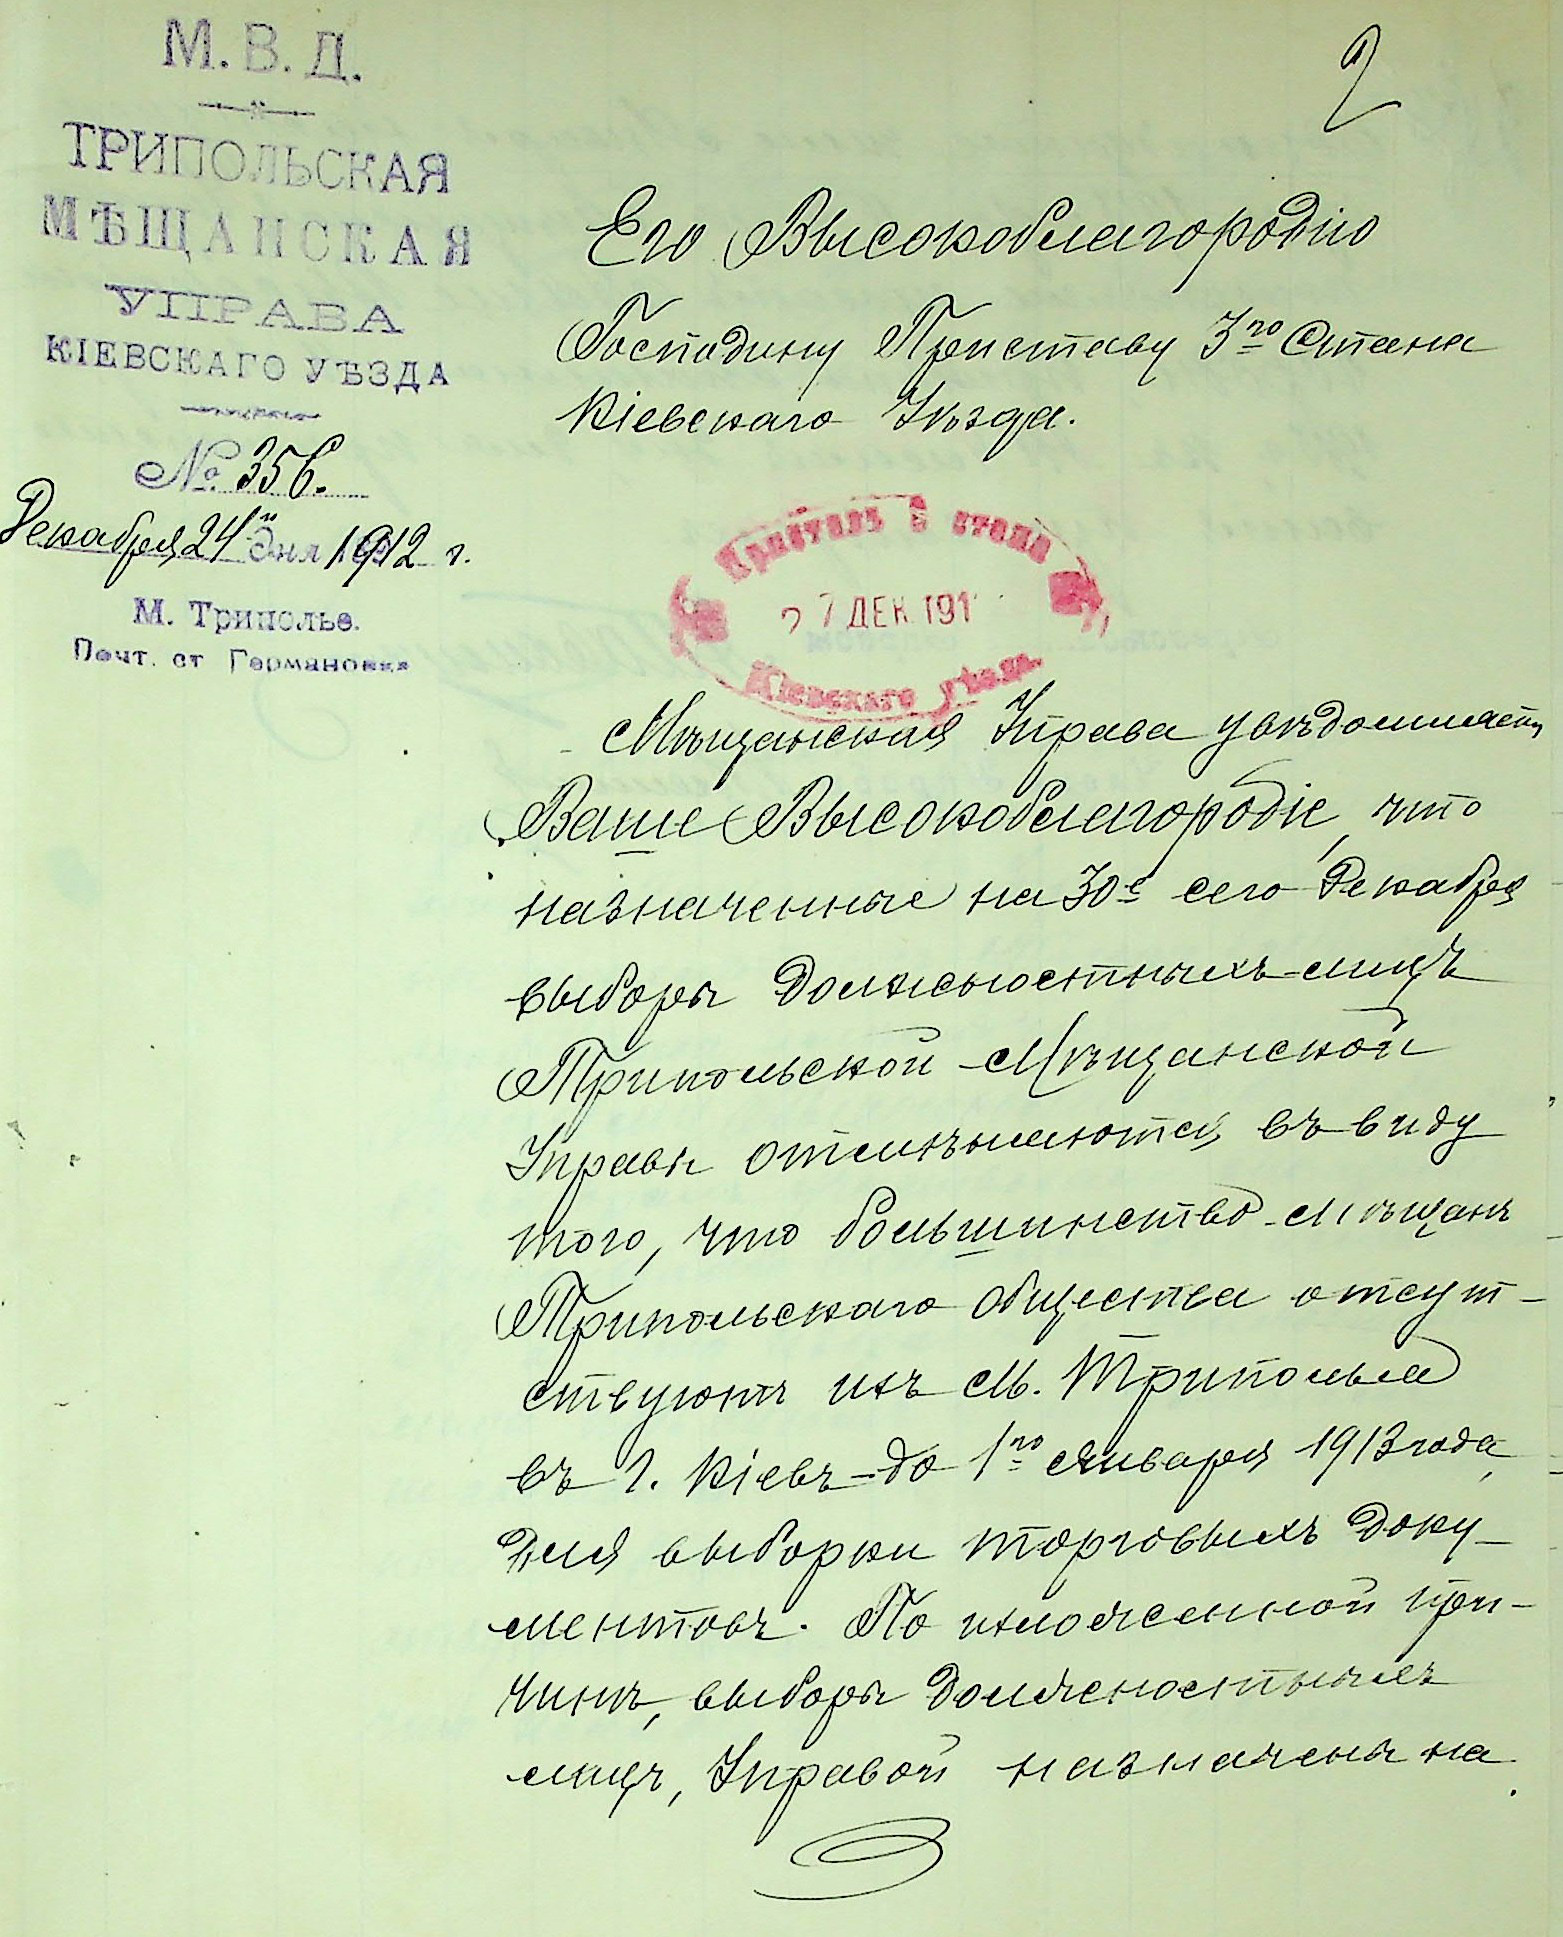 2
М. В. Д.
ТРИПОЛЬСКАЯ
МѢЩАНСКАЯ
УПРАВА
КІЕВСКАГО УѢЗДА
№ 356.
Декабря 24 дня 1912 г.
М. Триполье.
Почт. ст Германовка
Его Высокоблагородію
Господину Приставу 3го Стана
Кіевскаго Уѣзда.
Приставъ 3 стана
27 ДЕК 191
Кіевскаго уѣзда.
Мѣщанская Управа увѣдомляетъ
Ваше Высокоблагородіе, что
назначенные на 30е сего Декабря
выборы должностныхъ лицъ
Трипольской Мѣщанской
Управы отмѣняются, въ виду
того, что большинство мѣщанъ
Трипольскаго общества отсут-
ствуютъ изъ м. Триполья
въ г. Кіевъ до 1го Января 1913 года,
для выборки торговыхъ доку-
ментовъ. По изложенной при-
чинѣ, выборы должностныхъ
лицъ, Управой назначены на